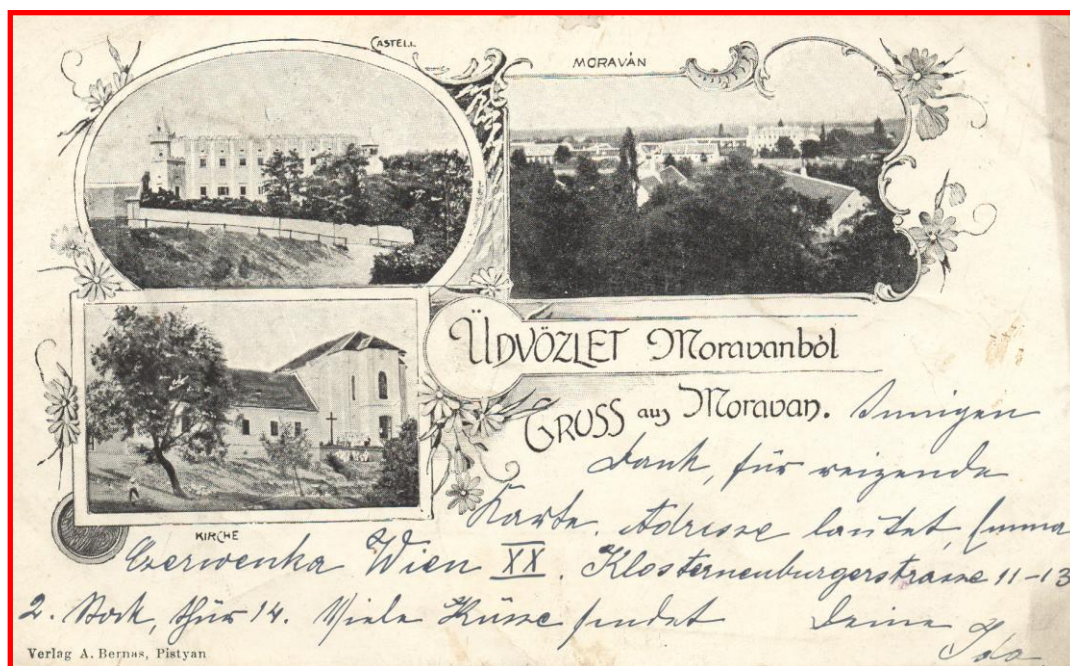 CASTELL
MORAVÁN
ÜDVÖZLET Moravanból
GRUSS aus Moravan.
KIRCHE
Innigen
Dank, für reizende
Karte. Adresse lautet, Emma
Czerwenka Wien XX. Klosterneuburgerstrasse 11-13
2. Stock, Thür 14. Viele Küsse sendet Deine
Ida
Verlag A. Bernas, Pistyan